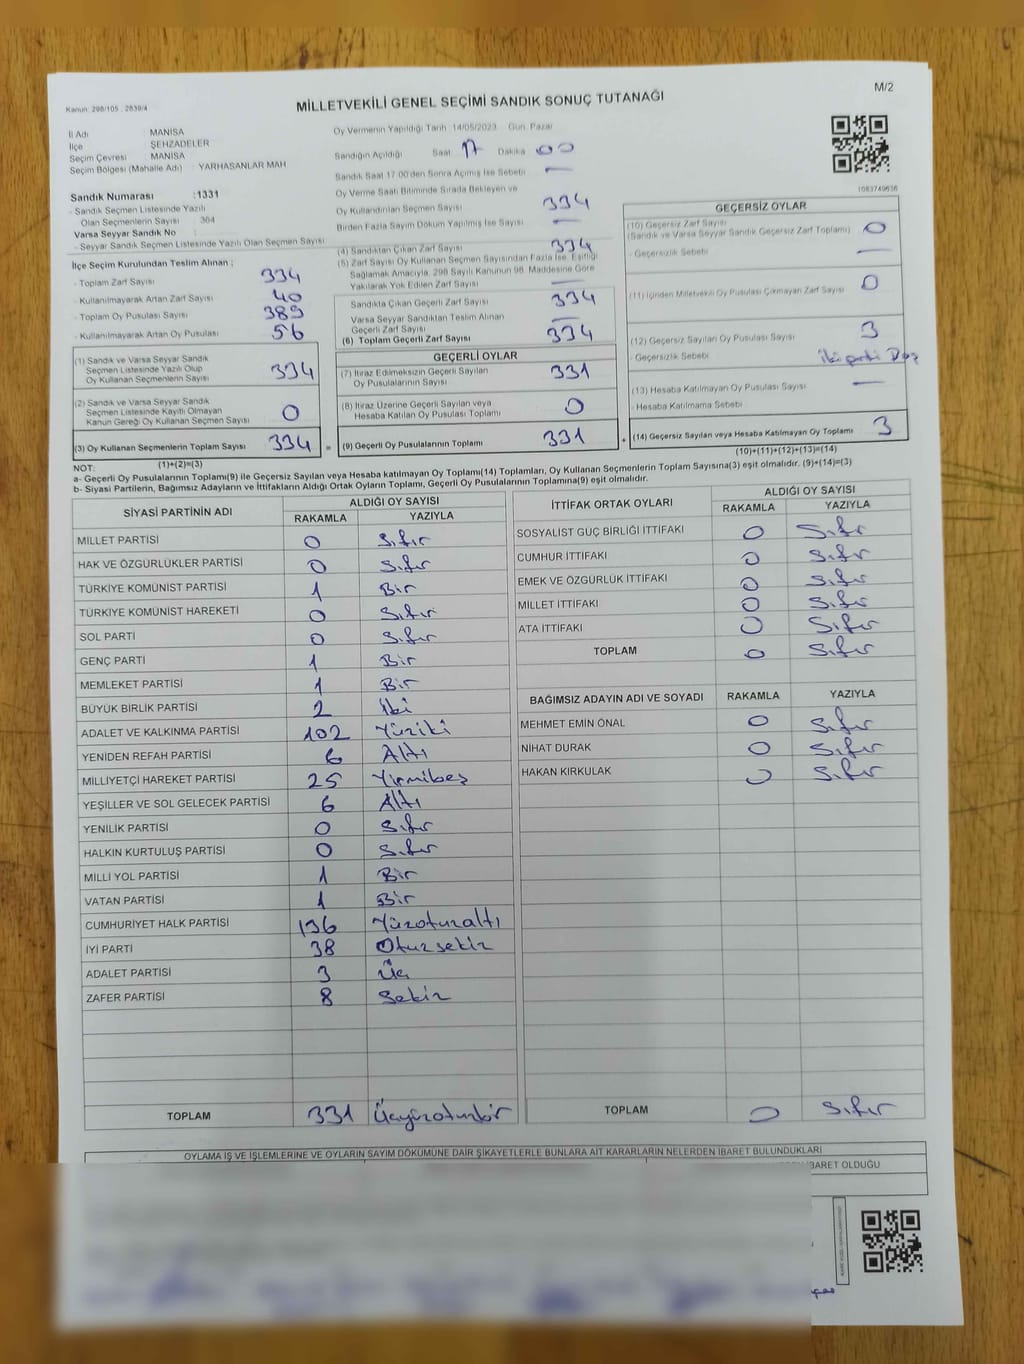 M/2
Kanun: 298/105 , 2839/4
MİLLETVEKİLİ GENEL SEÇİMİ SANDIK SONUÇ TUTANAĞI
İl Adı : MANİSA
İlçe : ŞEHZADELER
Seçim Çevresi : MANİSA
Seçim Bölgesi (Mahalle Adı) : YARHASANLAR MAH
Sandık Numarası :1331
- Sandık Seçmen Listesinde Yazılı
Olan Seçmenlerin Sayısı : 364
Varsa Seyyar Sandık No :
- Seyyar Sandık Seçmen Listesinde Yazılı Olan Seçmen Sayısı
Oy Vermenin Yapıldığı Tarih 14/05/2023 Gün: Pazar
Sandığın Açıldığı Saat 17 Dakika 00
Sandık Saat 17.00'den Sonra Açılmış İse Sebebi —
Oy Verme Saati Bitiminde Sırada Bekleyen ve
Oy Kullandırılan Seçmen Sayısı 334
Birden Fazla Sayım Döküm Yapılmış İse Sayısı —
1083749636
İlçe Seçim Kurulundan Teslim Alınan ;
- Toplam Zarf Sayısı 334
- Kullanılmayarak Artan Zarf Sayısı 40
- Toplam Oy Pusulası Sayısı 389
- Kullanılmayarak Artan Oy Pusulası 56
(1) Sandık ve Varsa Seyyar Sandık
Seçmen Listesinde Yazılı Olup
Oy Kullanan Seçmenlerin Sayısı 334
(2) Sandık ve Varsa Seyyar Sandık
Seçmen Listesinde Kayıtlı Olmayan
Kanun Gereği Oy Kullanan Seçmen Sayısı 0
(3) Oy Kullanan Seçmenlerin Toplam Sayısı 334 =
(1)+(2)=(3)
(4) Sandıktan Çıkan Zarf Sayısı 334
(5) Zarf Sayısı Oy Kullanan Seçmen Sayısından Fazla İse, Eşitliği
Sağlamak Amacıyla, 298 Sayılı Kanunun 98. Maddesine Göre
Yakılarak Yok Edilen Zarf Sayısı —
Sandıkta Çıkan Geçerli Zarf Sayısı 334
Varsa Seyyar Sandıktan Teslim Alınan
Geçerli Zarf Sayısı —
(6) Toplam Geçerli Zarf Sayısı 334
GEÇERLİ OYLAR
(7) İtiraz Edilmeksizin Geçerli Sayılan
Oy Pusulalarının Sayısı 331
(8) İtiraz Üzerine Geçerli Sayılan veya
Hesaba Katılan Oy Pusulası Toplamı 0
(9) Geçerli Oy Pusulalarının Toplamı 331 +
GEÇERSİZ OYLAR
(10) Geçersiz Zarf Sayısı
(Sandık ve Varsa Seyyar Sandık Geçersiz Zarf Toplamı) 0
- Geçersizlik Sebebi —
(11) İçinden Milletvekili Oy Pusulası Çıkmayan Zarf Sayısı 0
(12) Geçersiz Sayılan Oy Pusulası Sayısı 3
- Geçersizlik Sebebi iki parti
(13) Hesaba Katılmayan Oy Pusulası Sayısı —
- Hesaba Katılmama Sebebi
(14) Geçersiz Sayılan veya Hesaba Katılmayan Oy Toplamı 3
(10)+(11)+(12)+(13)=(14)
NOT:
a- Geçerli Oy Pusulalarının Toplamı(9) ile Geçersiz Sayılan veya Hesaba katılmayan Oy Toplamı(14) Toplamları, Oy Kullanan Seçmenlerin Toplam Sayısına(3) eşit olmalıdır. (9)+(14)=(3)
b- Siyasi Partilerin, Bağımsız Adayların ve İttifakların Aldığı Ortak Oyların Toplamı, Geçerli Oy Pusulalarının Toplamına(9) eşit olmalıdır.
SİYASİ PARTİNİN ADI ALDIĞI OY SAYISI
RAKAMLA YAZIYLA
MİLLET PARTİSİ 0 Sıfır
HAK VE ÖZGÜRLÜKLER PARTİSİ 0 Sıfır
TÜRKİYE KOMÜNİST PARTİSİ 1 Bir
TÜRKİYE KOMÜNİST HAREKETİ 0 Sıfır
SOL PARTİ 0 Sıfır
GENÇ PARTİ 1 Bir
MEMLEKET PARTİSİ 1 Bir
BÜYÜK BİRLİK PARTİSİ 2 İki
ADALET VE KALKINMA PARTİSİ 102 Yüziki
YENİDEN REFAH PARTİSİ 6 Altı
MİLLİYETÇİ HAREKET PARTİSİ 25 Yirmibeş
YEŞİLLER VE SOL GELECEK PARTİSİ 6 Altı
YENİLİK PARTİSİ 0 Sıfır
HALKIN KURTULUŞ PARTİSİ 0 Sıfır
MİLLİ YOL PARTİSİ 1 Bir
VATAN PARTİSİ 1 Bir
CUMHURİYET HALK PARTİSİ 136 Yüzotuzaltı
İYİ PARTİ 38 Otuzsekiz
ADALET PARTİSİ 3 Üç
ZAFER PARTİSİ 8 Sekiz
TOPLAM 331 Üçyüzotuzbir
İTTİFAK ORTAK OYLARI ALDIĞI OY SAYISI
RAKAMLA YAZIYLA
SOSYALİST GÜÇ BİRLİĞİ İTTİFAKI 0 Sıfır
CUMHUR İTTİFAKI 0 Sıfır
EMEK VE ÖZGÜRLÜK İTTİFAKI 0 Sıfır
MİLLET İTTİFAKI 0 Sıfır
ATA İTTİFAKI 0 Sıfır
TOPLAM 0 Sıfır
BAĞIMSIZ ADAYIN ADI VE SOYADI RAKAMLA YAZIYLA
MEHMET EMİN ÖNAL 0 Sıfır
NİHAT DURAK 0 Sıfır
HAKAN KIRKULAK 0 Sıfır
TOPLAM 0 Sıfır
OYLAMA İŞ VE İŞLEMLERİNE VE OYLARIN SAYIM DÖKÜMÜNE DAİR ŞİKAYETLERLE BUNLARA AİT KARARLARIN NELERDEN İBARET BULUNDUKLARI
İBARET OLDUĞU